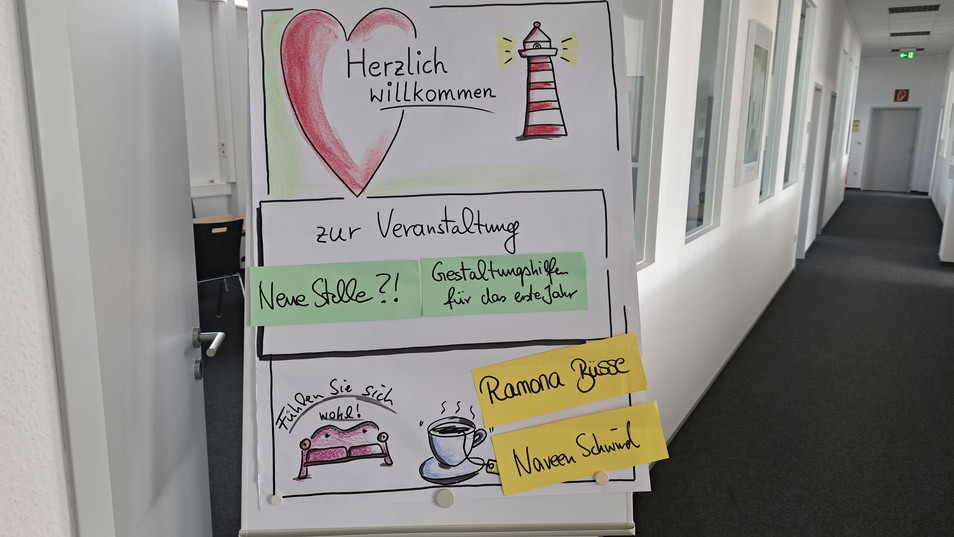 Herzlich
willkommen
zur Veranstaltung
Neue Stelle?!
Gestaltungshilfen
für das erste Jahr
Fühlen Sie sich
wohl!
Ramona Büsse
Naveen Schwind